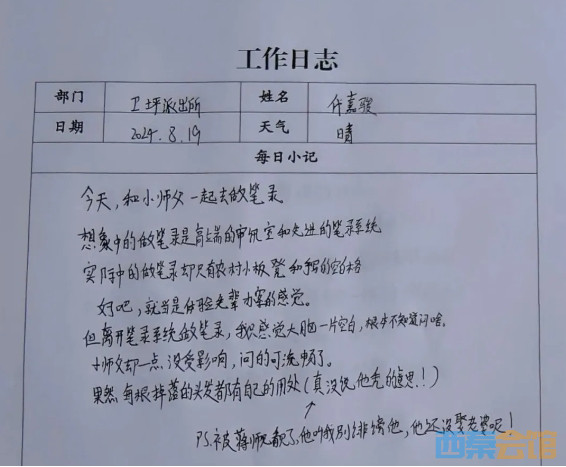 工作日志
部门 卫坪派出所 姓名 付嘉骏
日期 2024.8.19 天气 晴
每日小记
今天,和小师父一起去做笔录
想象中的做笔录是高端的审讯室和先进的笔录系统
实际中的做笔录却只有农村小板凳和
好吧,就当是体验老辈办案的感觉。
但离开笔录系统做笔录,我只感觉大脑一片空白,根本不知道问啥。
小师父却一点没受影响,问的可流畅了。
果然每根掉落的头发都有自己的用处(真没说他秃的意思!)
PS.被蒋师看了,他叫我别诽谤他,他还没娶老婆呢!
西秦会馆